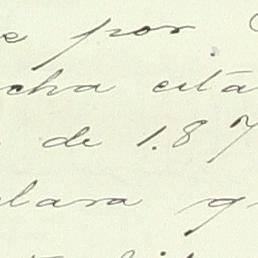 e por
cha está
de 1.87
lara q